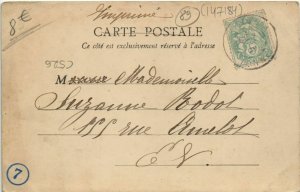 8€
Imprimé
29
(147181)
CARTE POSTALE
Ce côté est exclusivement réservé à l'adresse
C526
M Mademoiselle
Suzanne Bodot
155 rue Amelot
E.V.
7